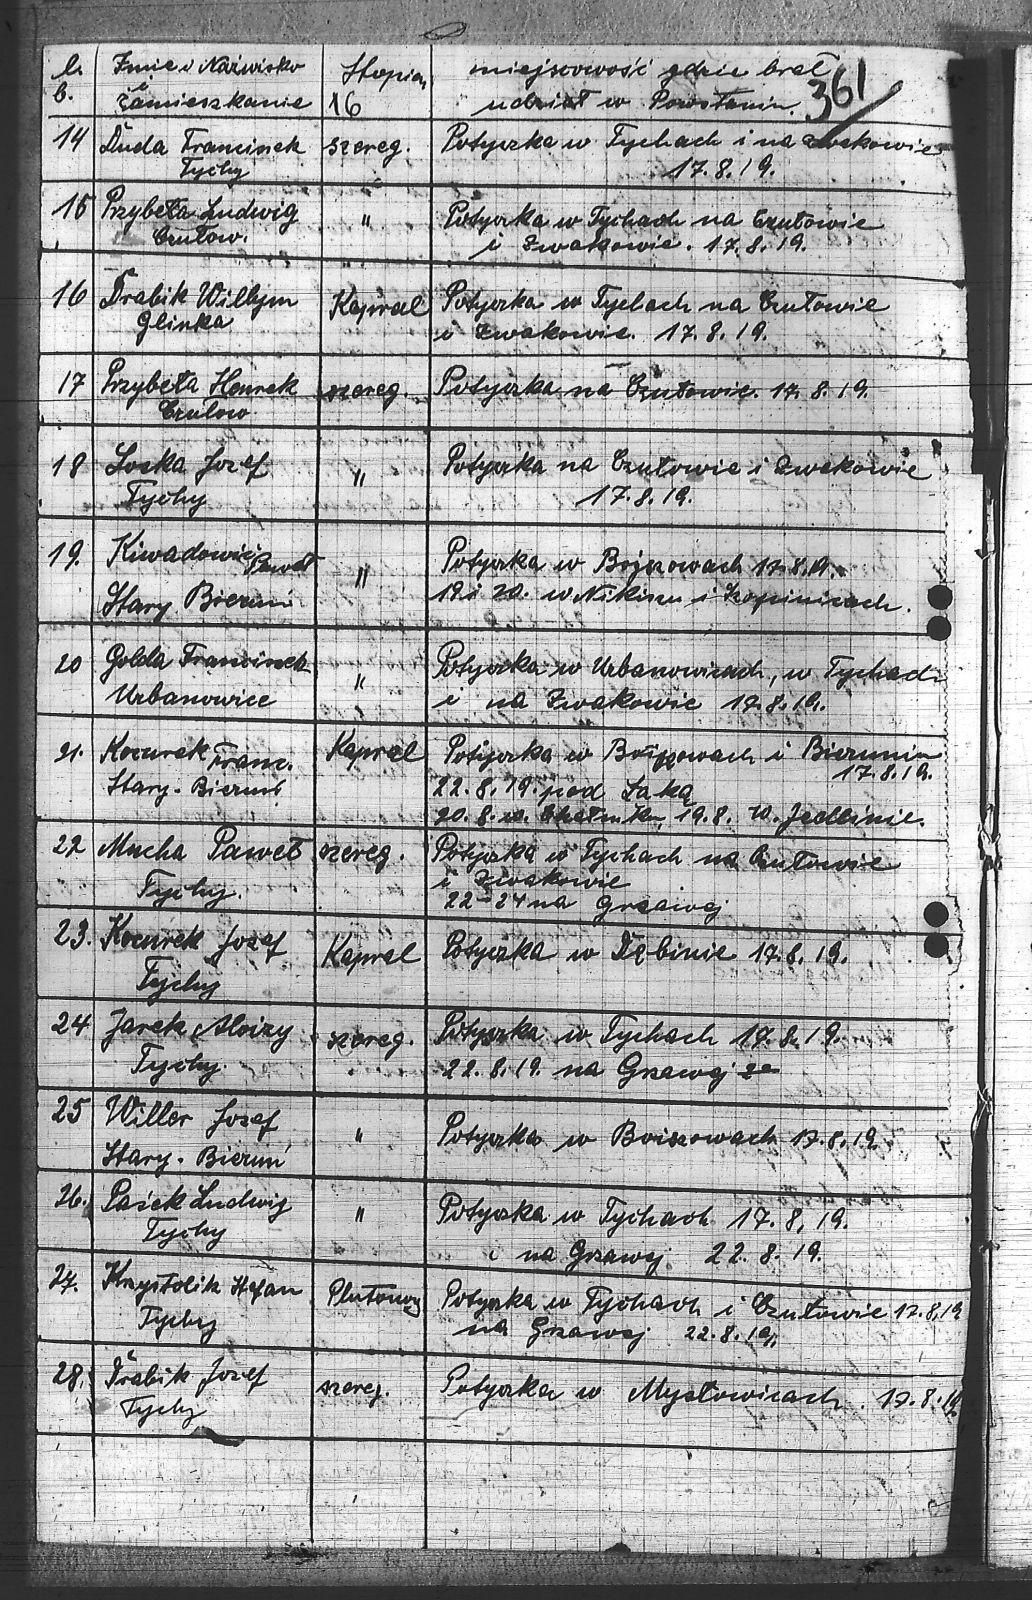 L. Imię i Nazwisko Stopień miejscowość gdzie brał 361
b. i Zamieszkanie 16 udział w Powstaniu.
14 Duda Franciszek szereg. Potyczka w Tychach i na Zwakowie
Tychy 17.8.19.
15 Przybeła Ludwig " Potyczka w Tychach na Czułowie
Czułow. i Zwakowie. 17.8.19.
16 Drabik Wilhym Kapral Potyczka w Tychach na Czułowie
Glinka i Zwakowie. 17.8.19.
17 Przybeła Henrek szereg. Potyczka na Czułowie. 17.8.19.
Czułow
18 Loska Jozef " Potyczka na Czułowie i Zwakowie
Tychy 17.8.19.
19. Kiwadowic Paweł " Potyczka w Bojszowach 17.8.19.
Stary Bieruń 19 i 20. w Nikiszu i
20 Golda Franciszek " Potyczka w Urbanowicach, w Tychach
Urbanowice i na Zwakowie 17.8.19.
21. Kocurek Franc. Kapral Potyczka w Bojszowach i Bieruniu
17.8.19.
Stary-Bieruń 22.8.19. pod Łąką
20.8. w. 19.8. w. Jedlinie.
22 Mucha Paweł szereg. Potyczka w Tychach na Czułowie
Tychy. i Zwakowie
22-24 na Grzawej
23. Kocurek Jozef Kapral Potyczka w Dębinie 17.8.19.
Tychy
24 Jarek Aloizy szereg. Potyczka w Tychach 17.8.19.
Tychy. 22.8.19. na Grzawej
25 Willer Jozef " Potyczka w Boiszowach 17.8.19.
Stary-Bieruń
26. Pasek Ludwig " Potyczka w Tychach 17.8.19.
Tychy i na Grzawej 22.8.19.
27. Krystolik Stefan Plutonowy Potyczka w Tychach i Czułowie 17.8.19
Tychy na Grzawej 22.8.19.
28. Drabik Jozef szereg. Potyczka w Mysłowicach. 17.8.19.
Tychy